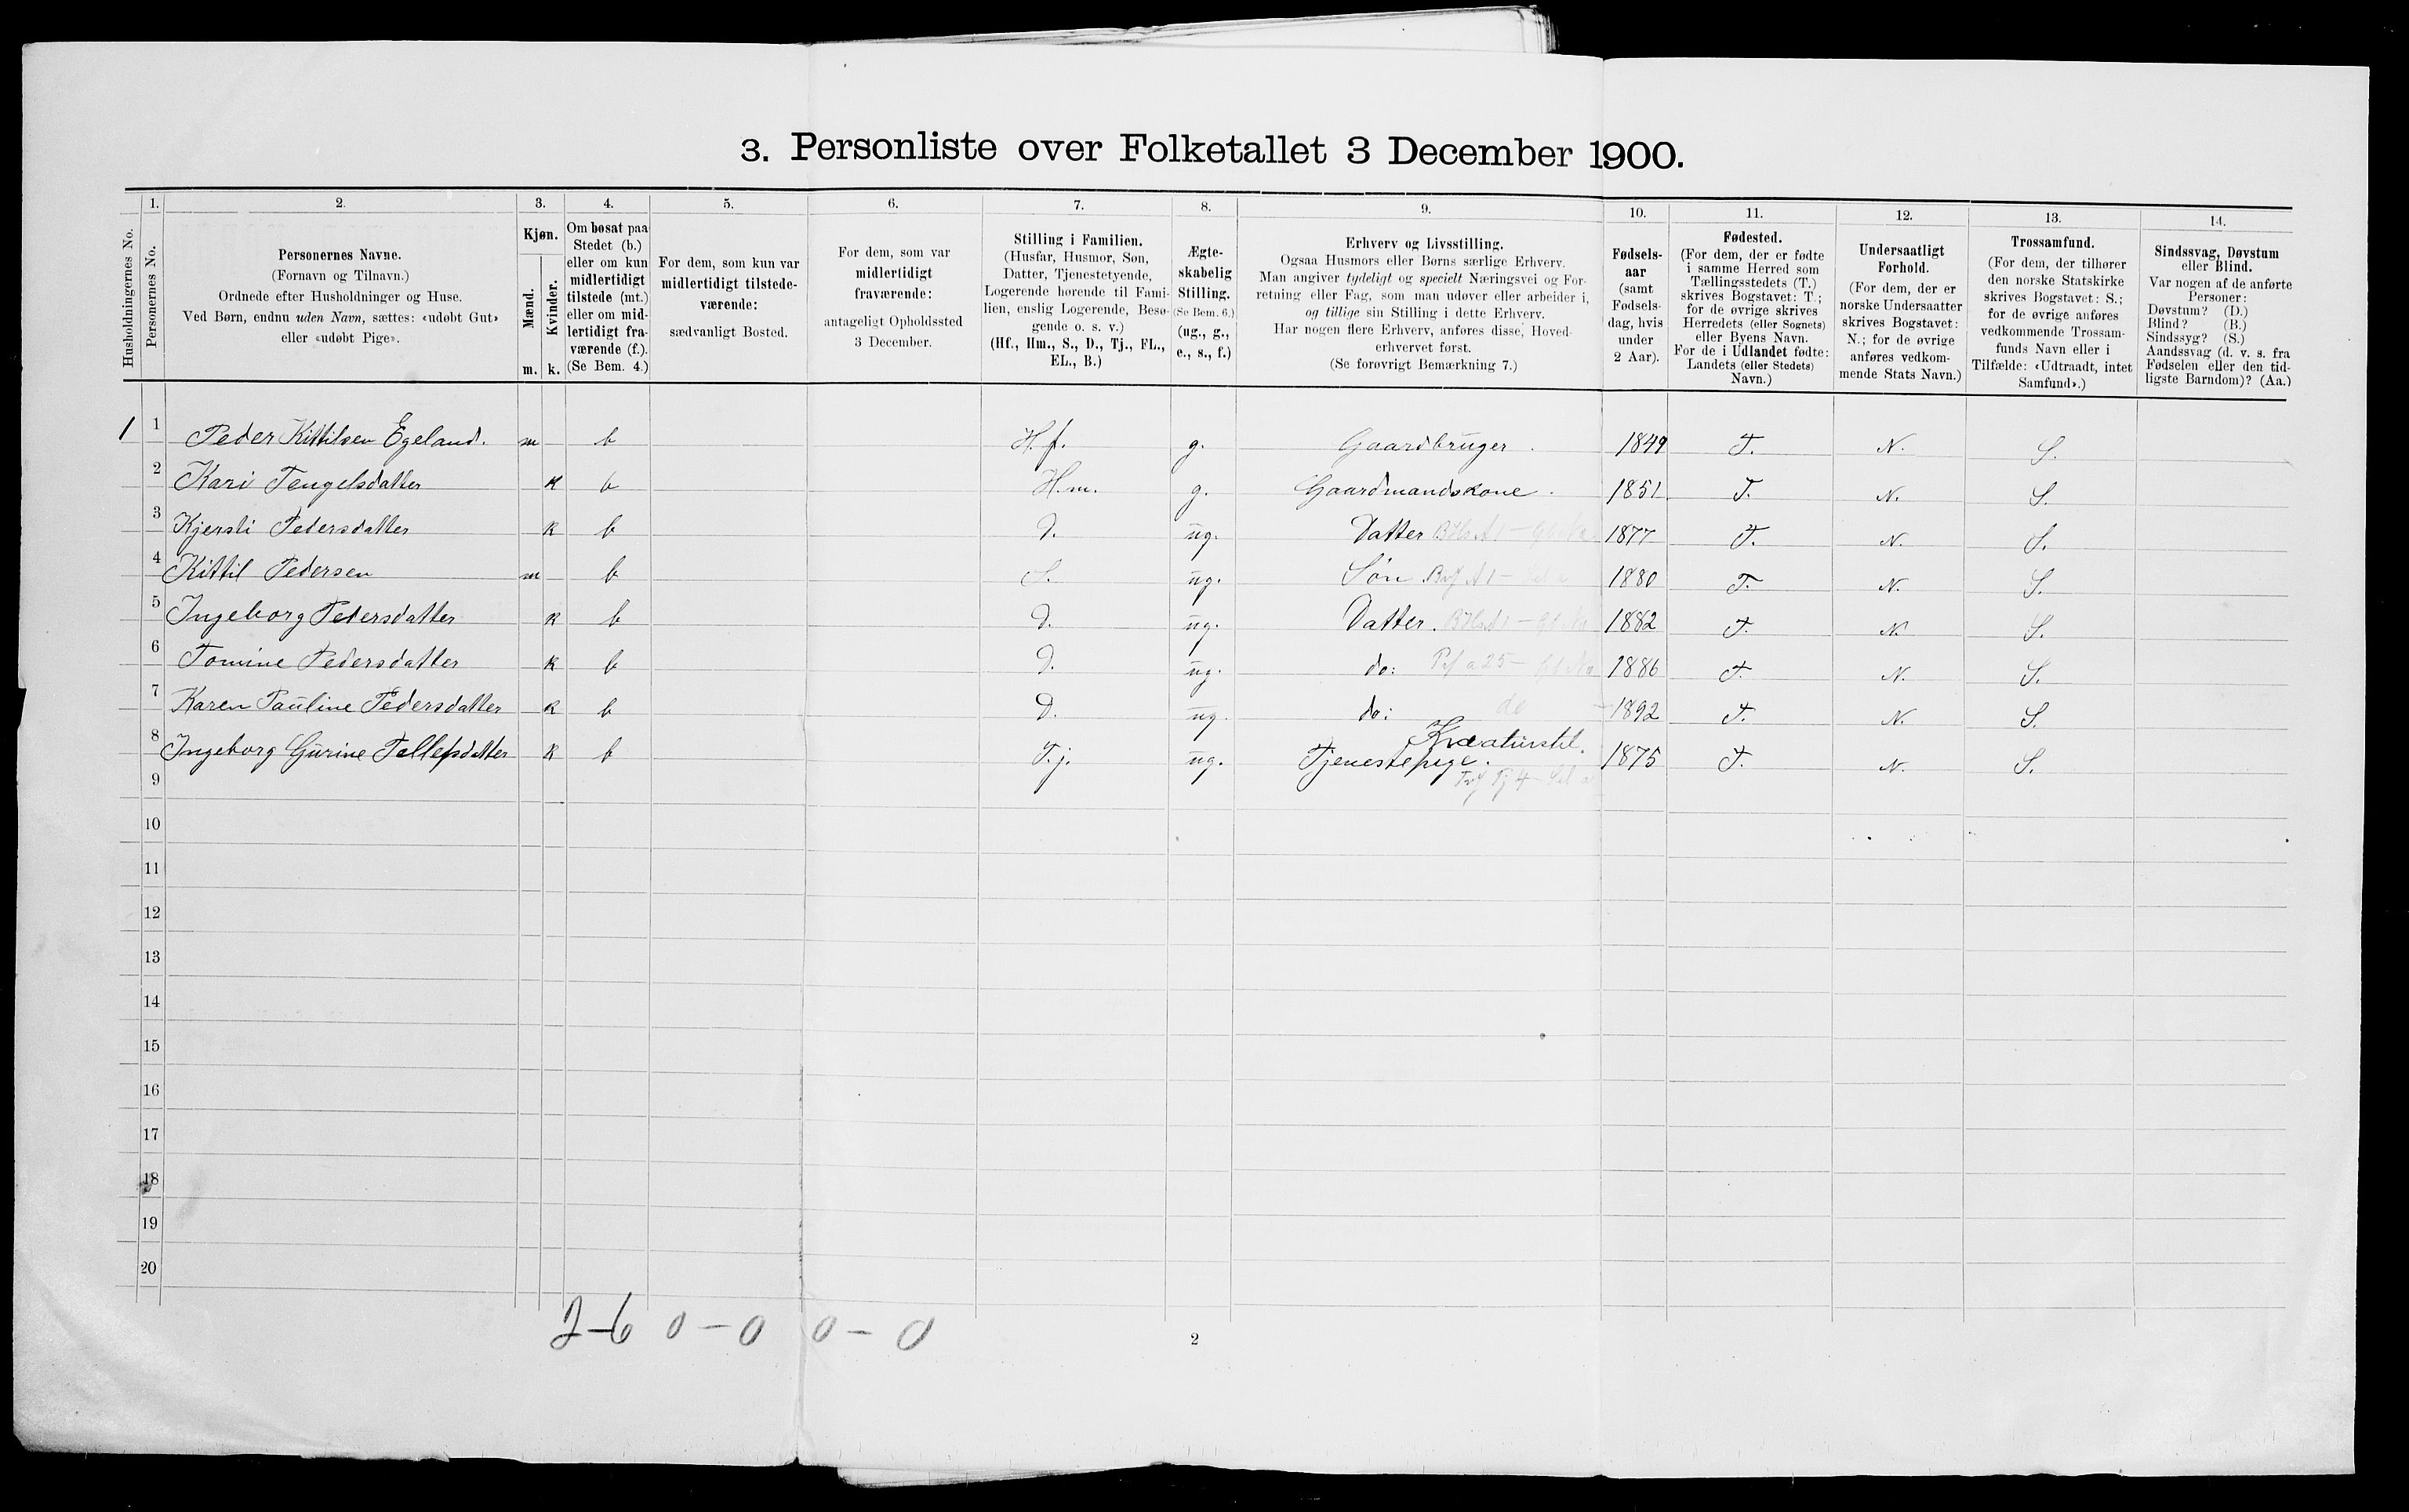 3. Personliste over Folketallet 3 December 1900.
1. 2. 3. 4. 5. 6. 7. 8. 9. 10. 11. 12. 13. 14.
Husholdningernes No.
Personernes No.
Personernes Navne.
(Fornavn og Tilnavn.)
Ordnede efter Husholdninger og Huse.
Ved Børn, endnu uden Navn, sættes: «udøbt Gut»
eller «udøbt Pige».
Kjøn.
Mænd.
Kvinder.
m. k.
Om bosat paa
Stedet (b.)
eller om kun
midlertidigt
tilstede (mt.)
eller om mid-
lertidigt fra-
værende (f.).
(Se Bem. 4.)
For dem, som kun var
midlertidigt tilstede-
værende:
sædvanligt Bosted.
For dem, som var
midlertidigt
fraværende:
antageligt Opholdssted
3 December.
Stilling i Familien.
(Husfar, Husmor, Søn,
Datter, Tjenestetyende,
Logerende hørende til Fami-
lien, enslig Logerende, Besø-
gende o. s. v.)
(Hf., Hm., S., D., Tj., FL.,
EL., B.)
Ægte-
skabelig
Stilling.
(Se Bem. 6.)
(ug., g.,
e., s., f.)
Erhverv og Livsstilling.
Ogsaa Husmors eller Børns særlige Erhverv.
Man angiver tydeligt og specielt Næringsvei og For-
retning eller Fag, som man udøver eller arbeider i,
og tillige sin Stilling i dette Erhverv.
Har nogen flere Erhverv, anføres disse, Hoved-
erhvervet først.
(Se forøvrigt Bemærkning 7.)
Fødsels-
aar
(samt
Fødsels-
dag, hvis
under
2 Aar).
Fødested.
(For dem, der er fødte
i samme Herred som
Tællingsstedets (T.)
skrives Bogstavet: T.;
for de øvrige skrives
Herredets (eller Sognets)
eller Byens Navn.
For de i Udlandet fødte:
Landets (eller Stedets)
Navn.)
Undersaatligt
Forhold.
(For dem, der er
norske Undersaatter
skrives Bogstavet:
N.; for de øvrige
anføres vedkom-
mende Stats Navn.)
Trossamfund.
(For dem, der tilhører
den norske Statskirke
skrives Bogstavet: S.;
for de øvrige anføres
vedkommende Trossam-
funds Navn eller i
Tilfælde: «Udtraadt, intet
Samfund».)
Sindssvag, Døvstum
eller Blind.
Var nogen af de anførte
Personer:
Døvstum? (D.)
Blind? (B.)
Sindssyg? (S.)
Aandssvag (d. v. s. fra
Fødselen eller den tid-
ligste Barndom)? (Aa.)
1 1 Peder Kittilsen Egeland. m b H.f. g. Gaardbruger. 1849 T. N. S.
2 Kari Tengelsdatter k b H.m. g. Gaardmandskone. 1851 T. N. S.
3 Kjersti Pedersdatter k b D. ug. Datter 1877 T. N. S.
4 Kittil Pedersen m b S. ug. Søn 1880 T. N. S.
5 Ingeborg Pedersdatter k b D. ug. Datter. 1882 T. N. S.
6 Tomine Pedersdatter k b D. ug. do: 1886 T. N. S.
7 Karen Pauline Pedersdatter k b D. ug. do: do 1892 T. N. S.
Kreaturstel.
8 Ingeborg Gurine Tellefsdatter k b T.j. ug. Tjenestepige. 1875 T. N. S.
9
10
11
12
13
14
15
16
17
18
19
20
2-6 0-0 0-0
2